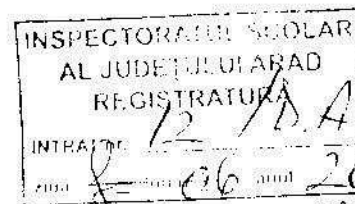 INSPECTORATUL ȘCOLAR
AL JUDEȚULUI ARAD
REGISTRATURA
INTRARE 12 / D.A
ziua 8 luna 06 anul 20